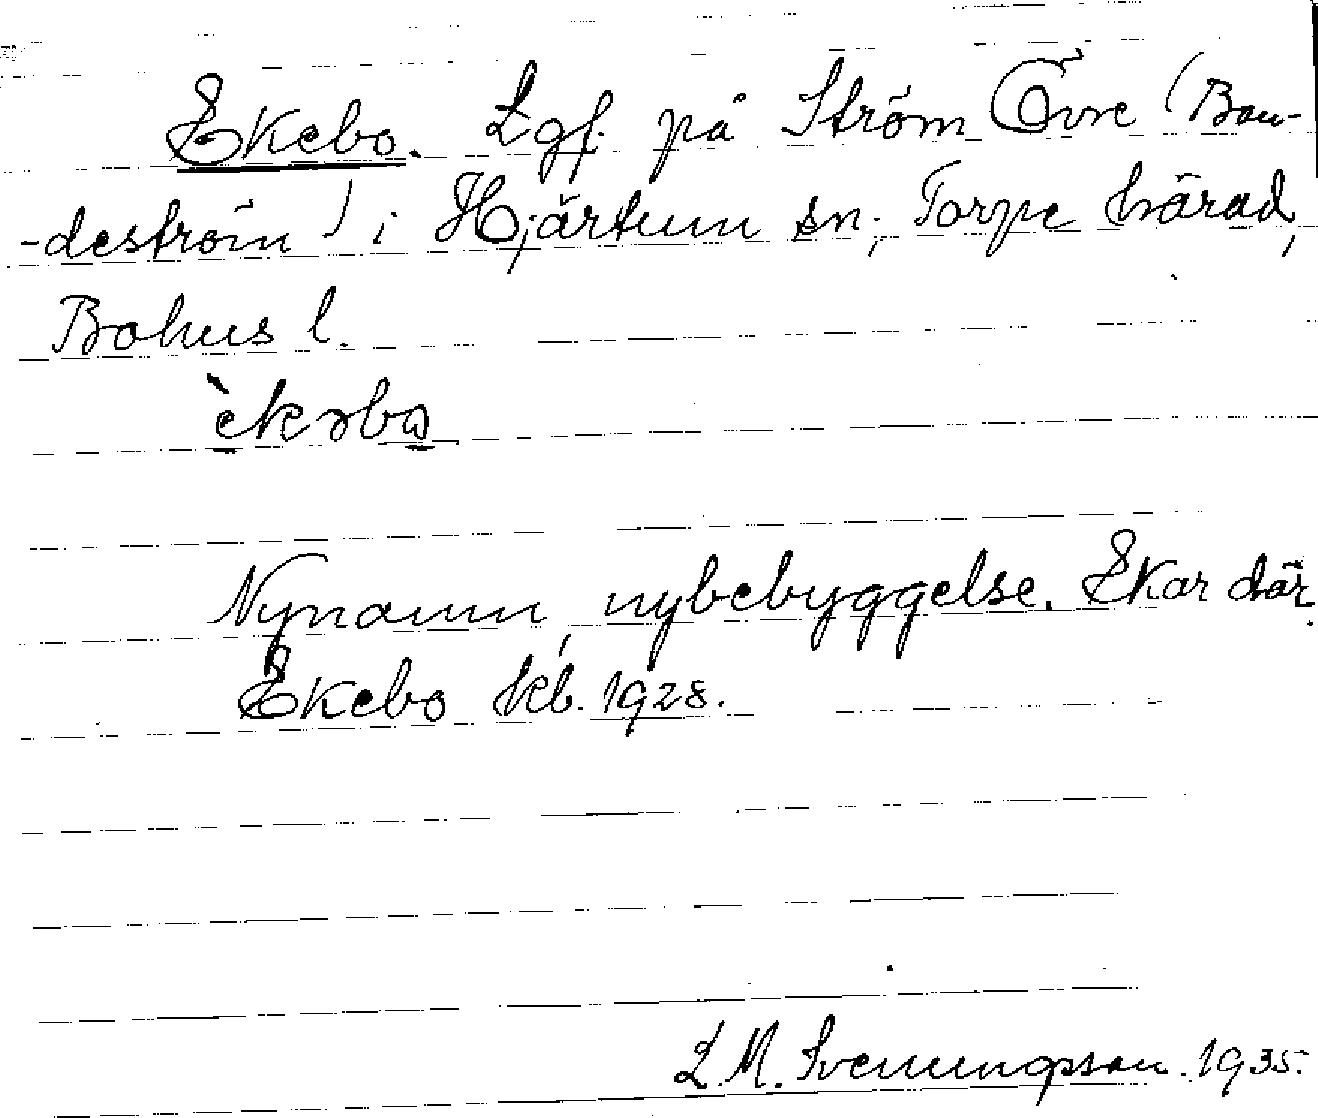 Ekebo. Lgf. på Ström Övre (Bon-
-deström) i Hjärtum sn; Torpe härad,
Bohus l.
èkəbω
Nynamn, nybebyggelse. Ekar där.
Ekebo kb. 1928.
L.M. Svenungsson. 1935.